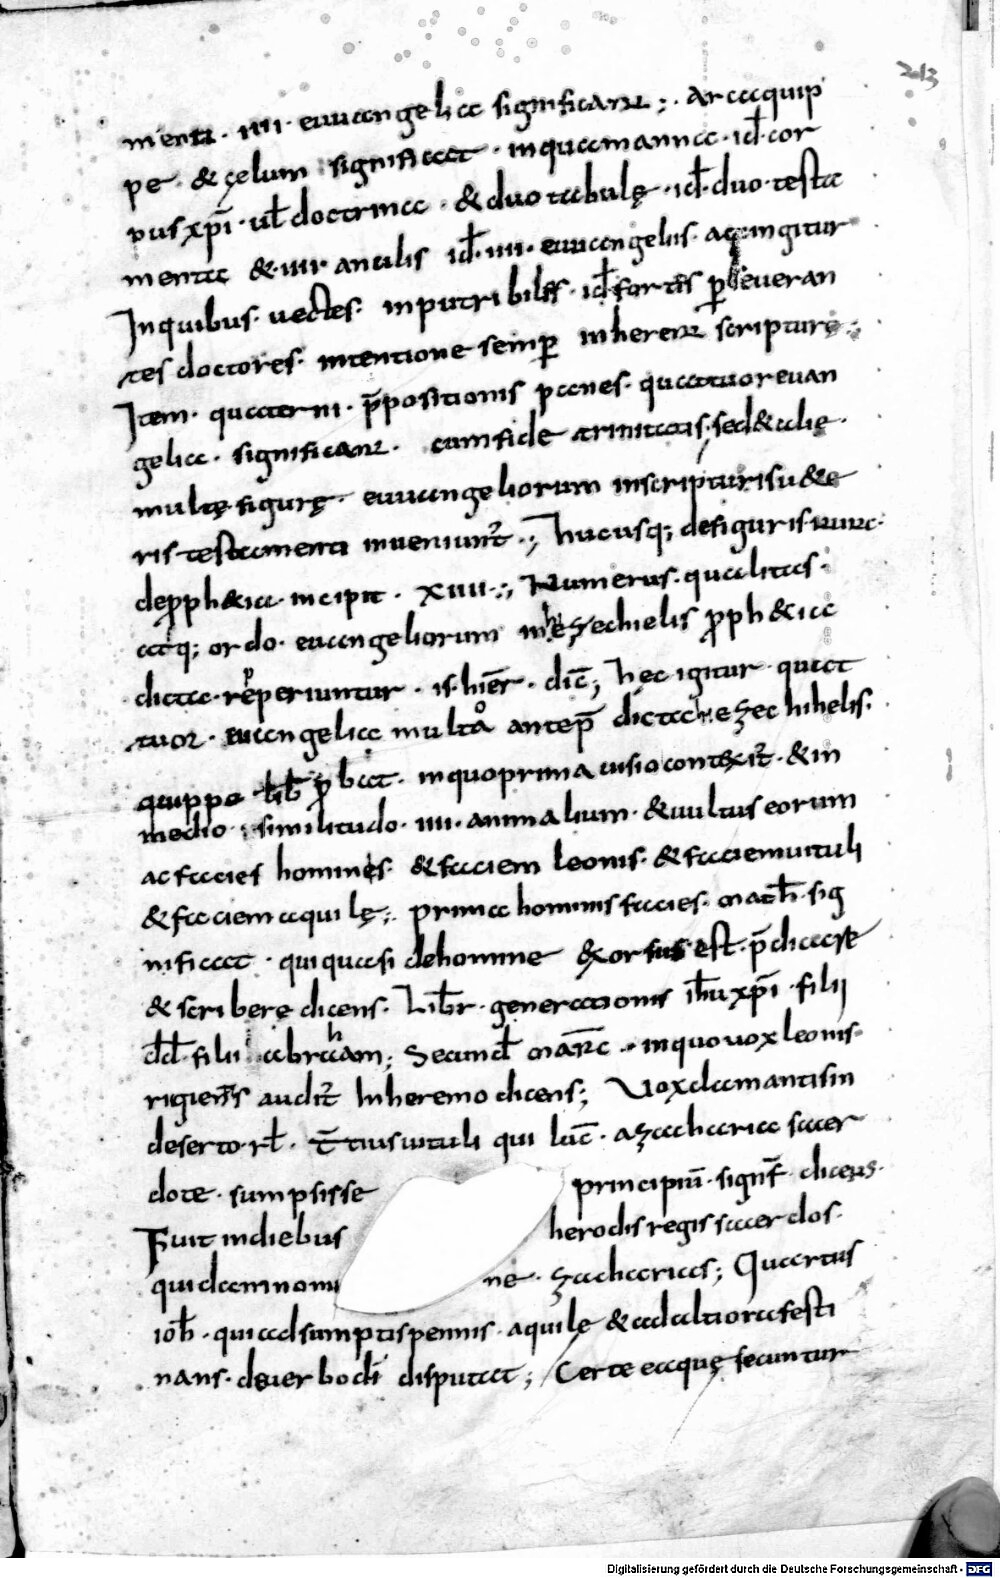 213
ment̄ · iiii · euuangelia significantur ; · arca quip
pe · & cęlum significat · in qua manna · id̄ · cor
pus xp̄i · ul̄ doctrina · & duo tabulę · id̄ · duo · testa
menta & · iiii anulis id̄ · iiii · euuangeliis · adiungitur
In quibus · uectes · inputribiles · id̄ fortes perseueran
tes doctores · intentione semper inherent scripturę ·;
Item · quaterni · p̄positionis panes · quattuor euan
gelia · significant · cum fide trinitatis · sed & alię ·
multę figurę · euuangeliorum in scripturis u&e
ris testamenti inueniunt̄ ·; hucusq; de figuris nunc ·
de proph&ia · incipit · xiiii ·; Numerus · qualitas ·
atq; ordo · euangeliorum in hezechielis proph&ia
dicta · reperiuntur · is · hier̄ · dic̄ ; hęc igitur · quat
tuor · euangelia multo ante p̄dicta hezechihelis ·
quippe lib̄ ꝓbat · in quo prima uisio contexit̄ · & in
medio · similitudo · iiii · animalium · & uultus eorum
ac facies hominis · & faciem leonis · & faciem uituli
& faciem aquilę ; prima hominis facies · math̄ · sig
nificat · qui quasi de homine exorsus est · p̄dicare
& scribere dicens · Liber · generationis ih̄u xp̄i · filii
dd̄ · filii abraham ; Secund̄ marc̄ · in quo uox leonis ·
rigientis audit̄ In heremo dicens ; Uox clamantis in
deserto · rl̄ · T̄tius uituli qui luc̄ · a zacharia sacer
dote · sumpsisse principiū · signif̄ · dicens ·
Fuit in diebus herodis regis sacerdos ·
quidam nomine · zacharias ; Quartus
ioh̄ · qui adsumptis pennis · aquilę & ad altiora festi
nans · de uerbo dī disputat ; Certe eaquę secuntur
Digitalisierung gefördert durch die Deutsche Forschungsgemeinschaft - DFG